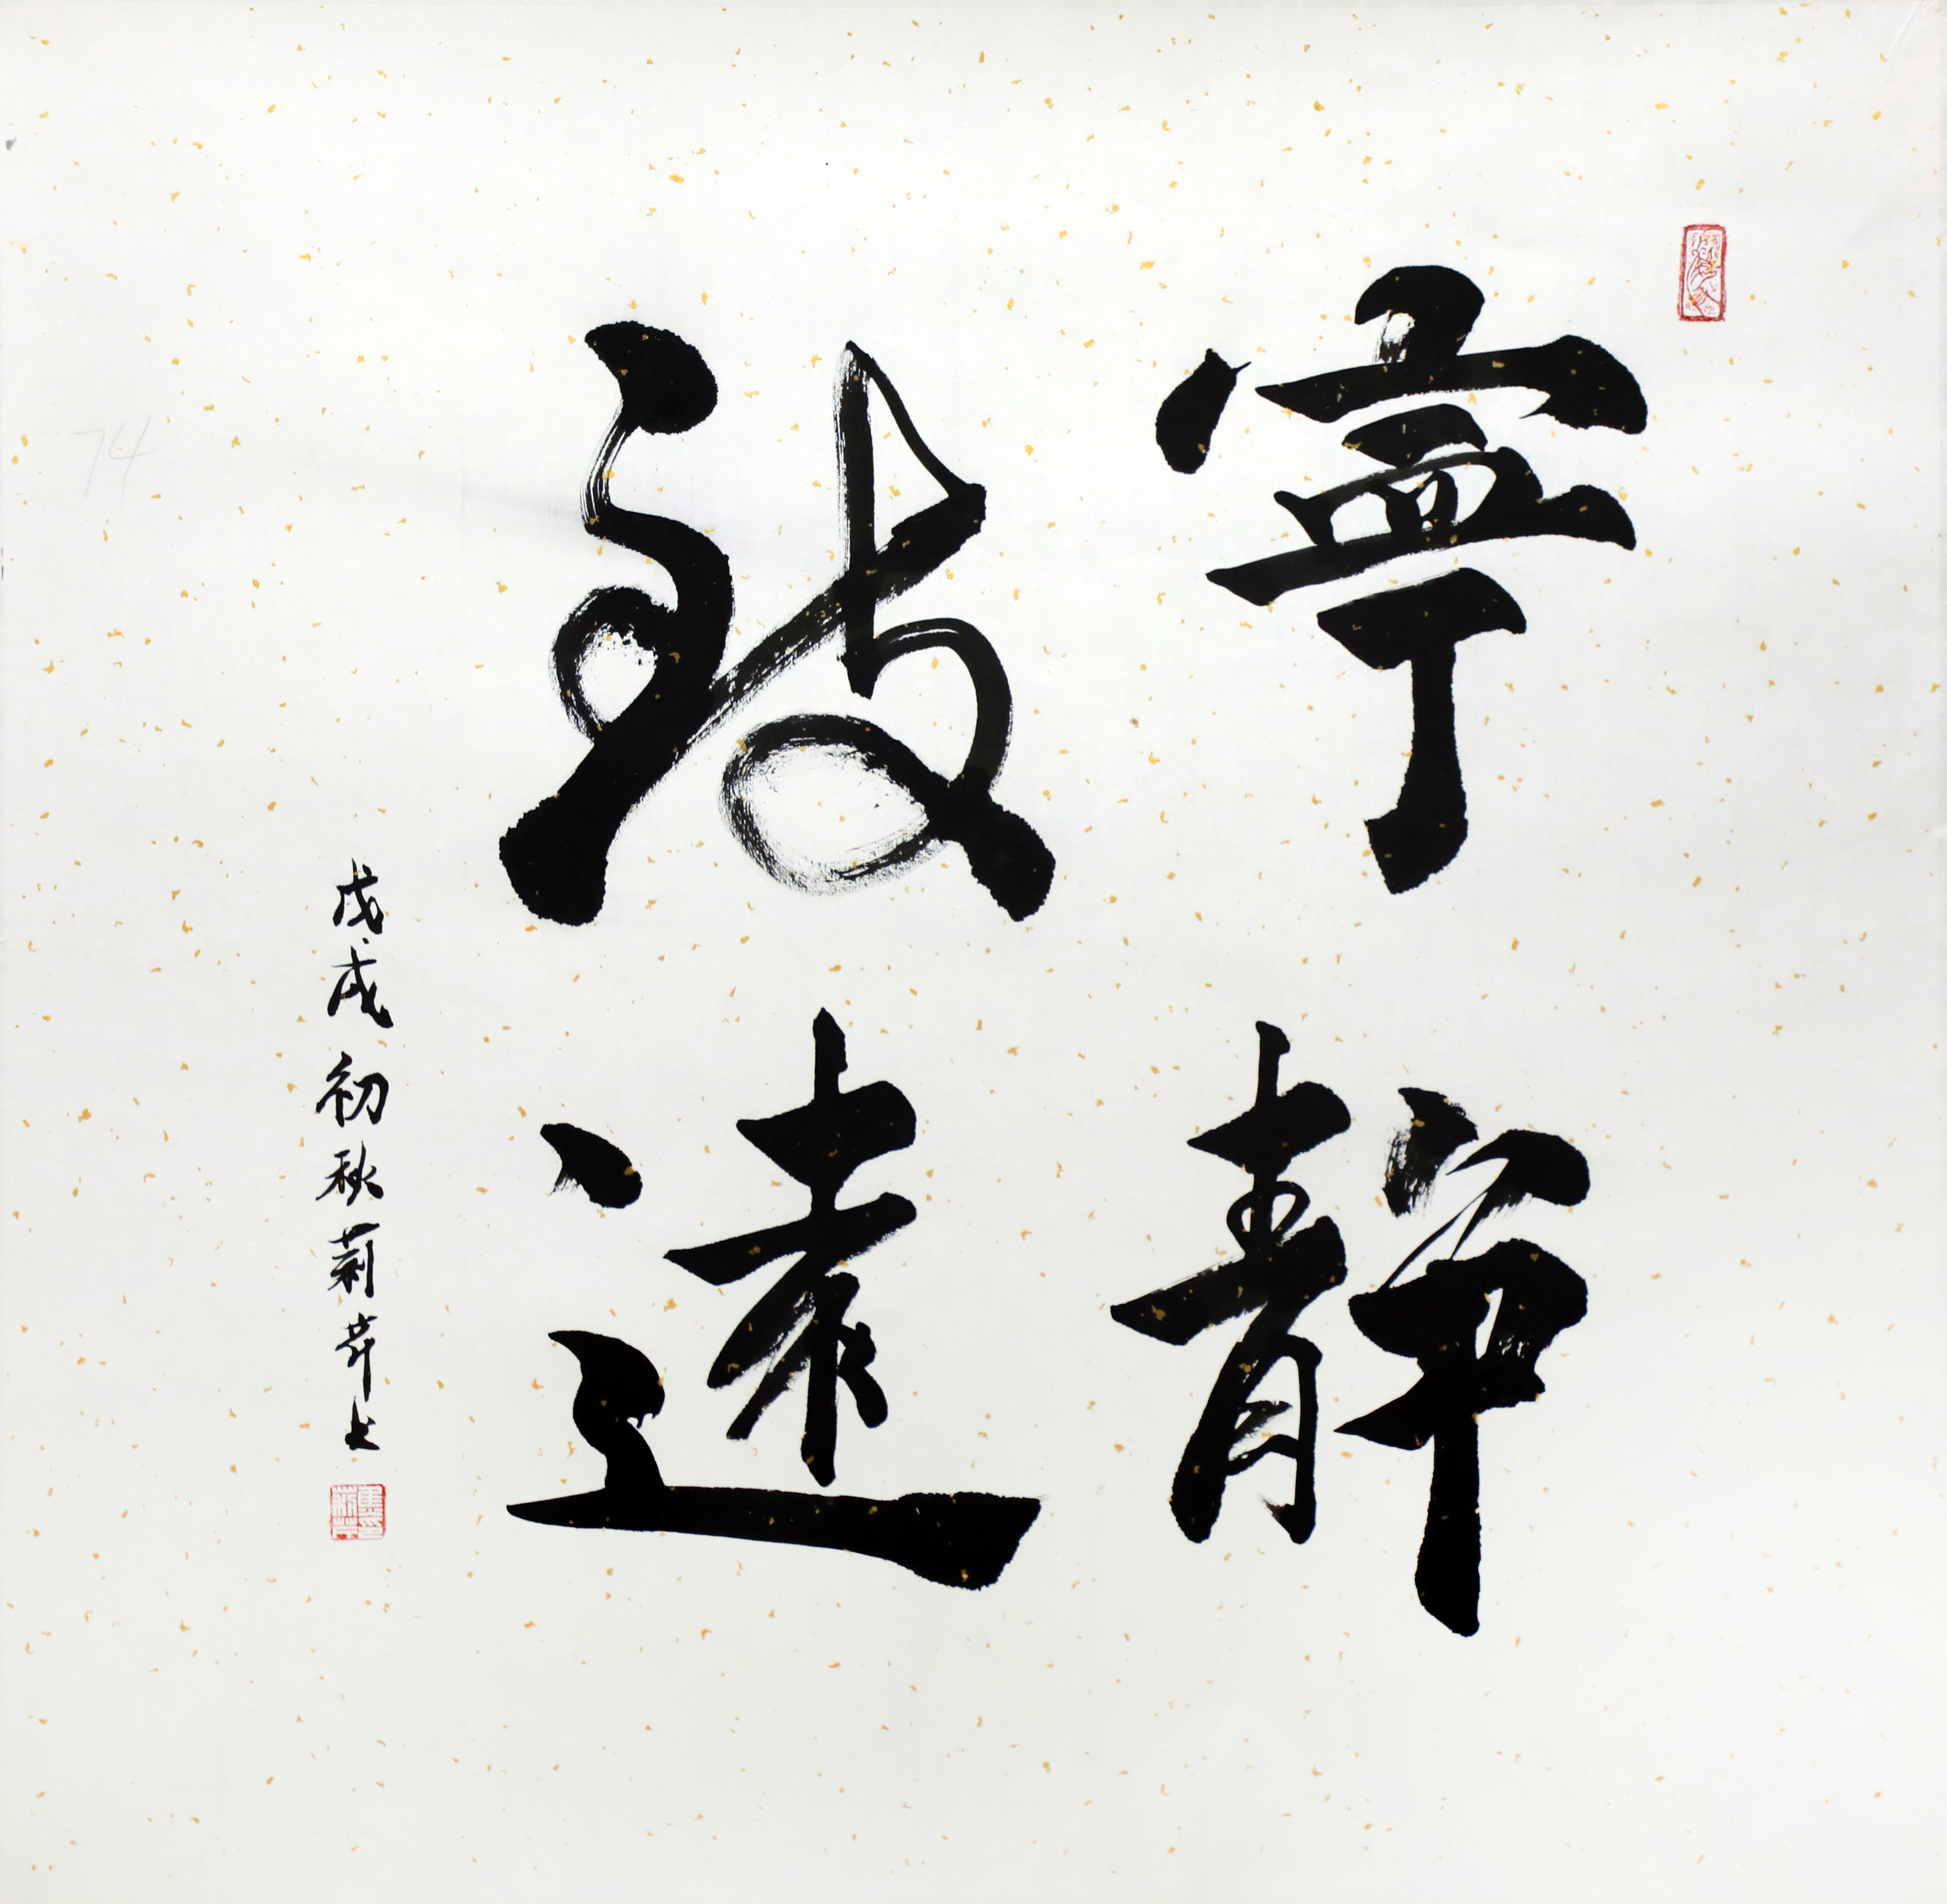 寧靜
致遠
戊戌初秋菊芹书
74